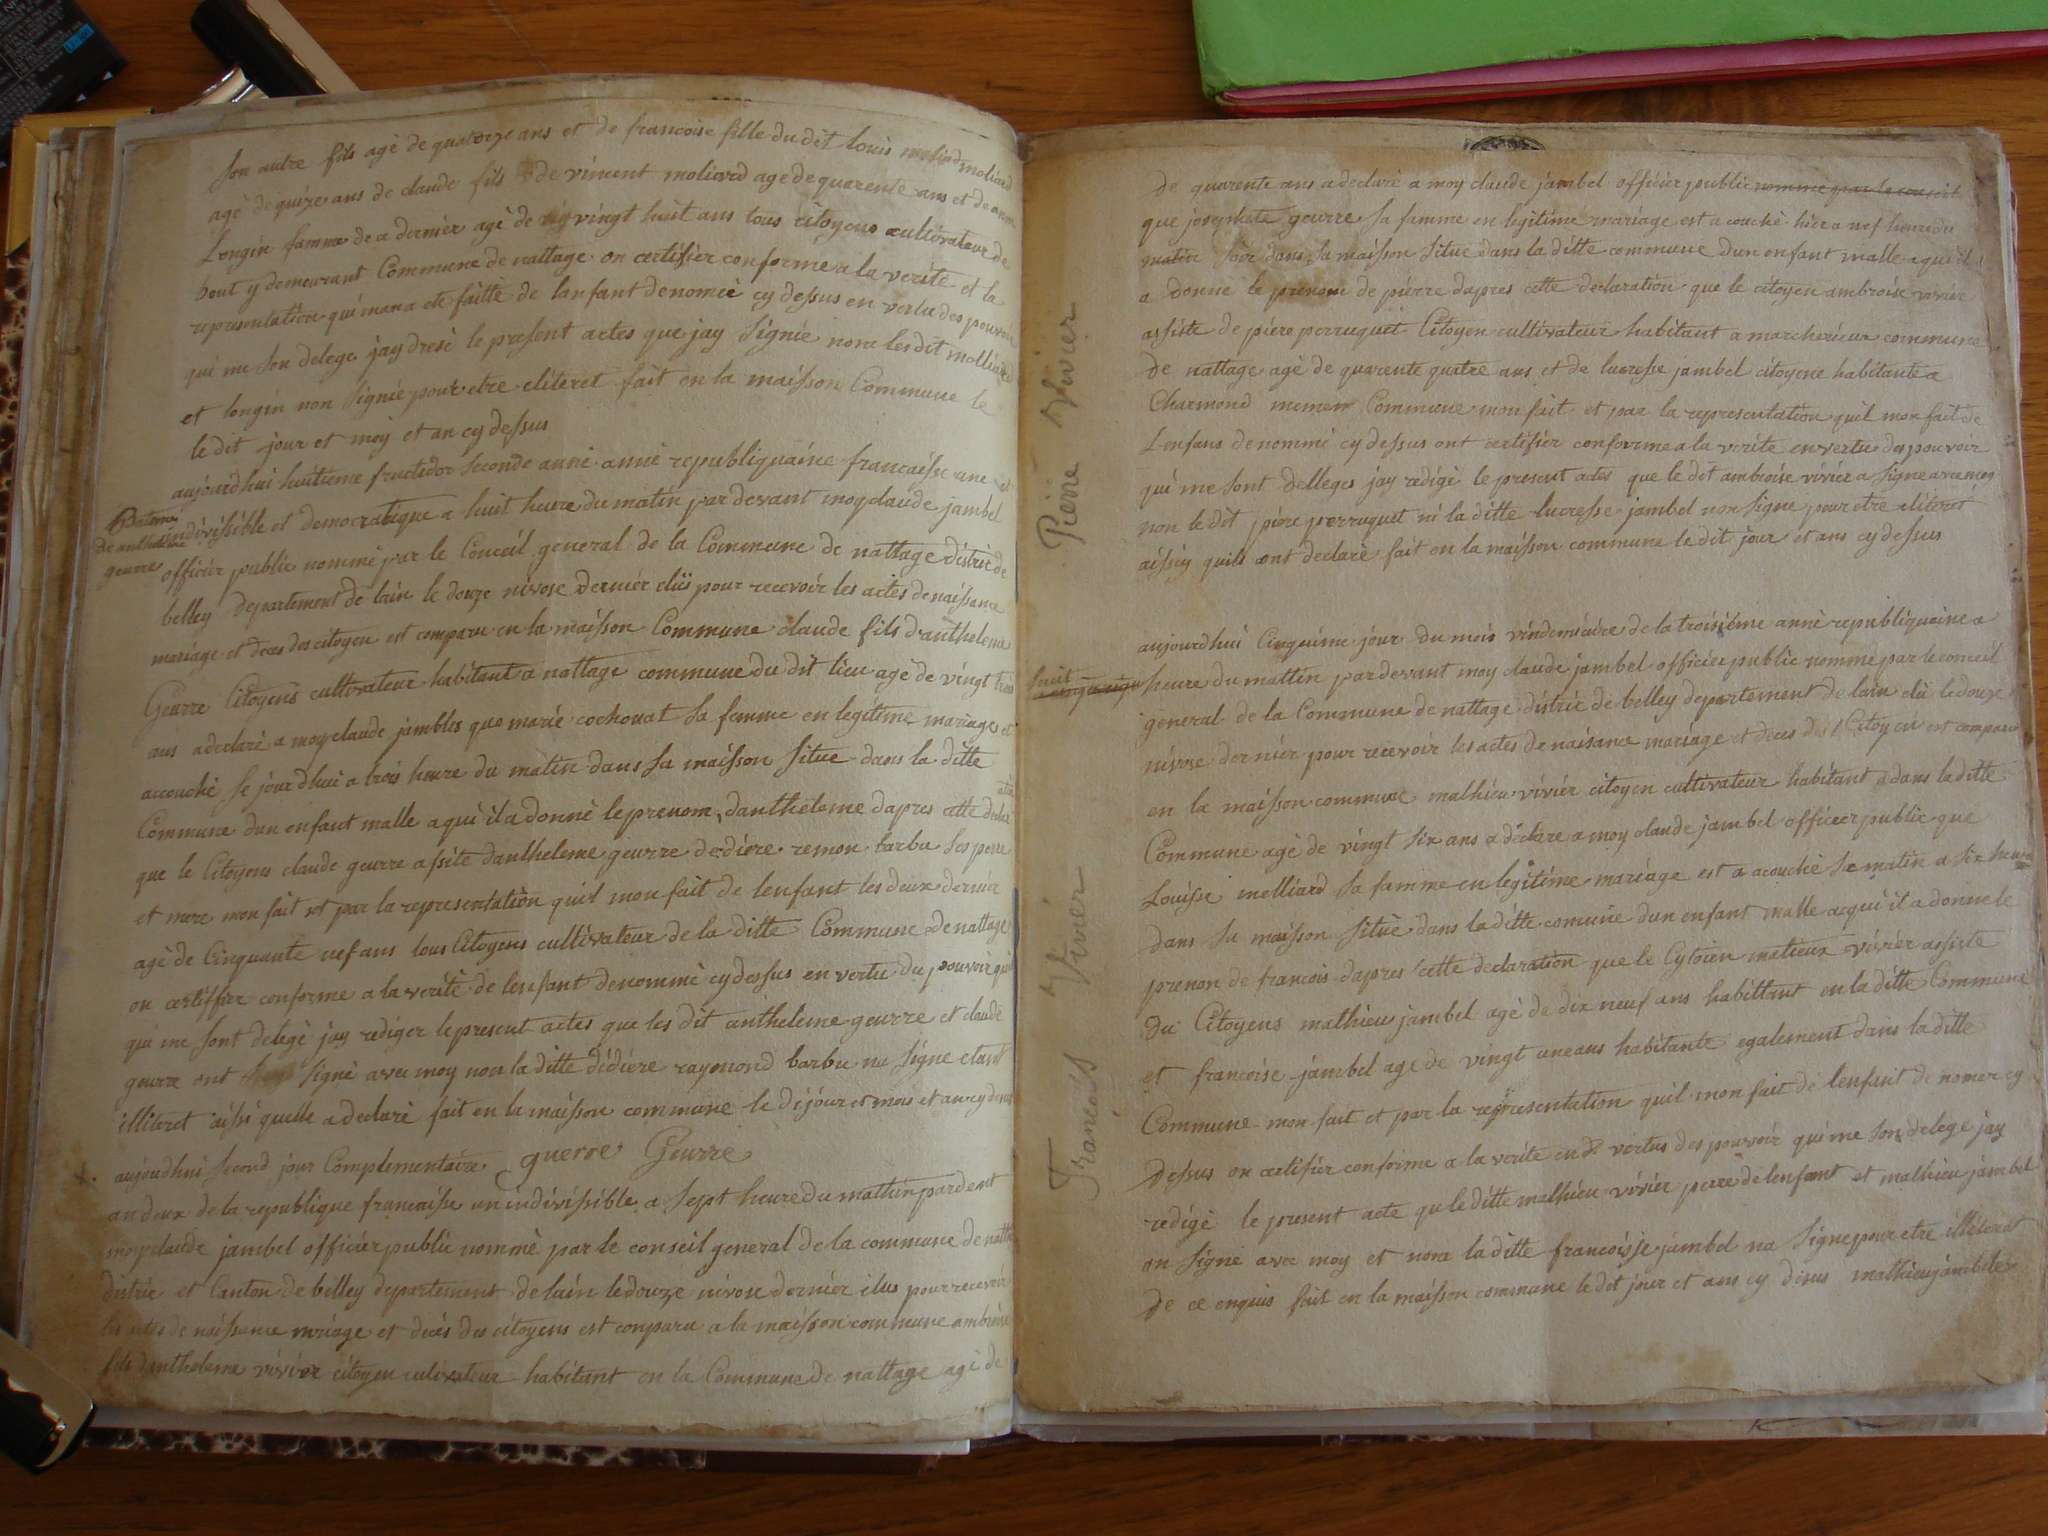 Son autre fils agè de quatorze ans et de francoise fille du dit louis moliard
agè de quize ans de claude fils de vincent moliard age de quarente ans et de
Longin famme de a dernièr agè de vingt huit ans tous citoyens cultivateur de
bout y demeurant Commune de nattage on certifièr conforme a la verite et la
representation qui mana ete faitte de lanfant denomée cy dessus en vertu des pouvoir
qui me son delege jay dresè le present actes que jay Signée non les dit molliard
et longin non Signè pour etre eliteret fait en la maisson Commune le
le dit jour et moy et an cy dessus
aujourdhui huitieme fructidor seconde anné anné republiquaine francaisse une et
indivisible et democratique a huit heure du matin par devant moy claude jambel
Bateme
de antheleme
geurre
officièr public nommè par le Conceil general de la Commune de nattage district de
belley departement de lain le douze nivose dernier elû pour recevoir les actes de naissance
mariage et deces des citoyen est comparu en la maisson Commune claude fils danthelema
Geurre Citoyens cultivateur habitant a nattage commune du dit lieu age de vingt trois
ans a declarè a moy claude jambles que mariè cochonat sa femme en legitime mariage et
accouchè Se jourdhui a trois heure du matin dans sa maisson Situe dans la ditte
Commune dun enfant malle a qui il a donnè le prenom danthéleme dapres cette declar
ation
que le Citoyens claude geurre assite danthéleme geurre dedière remon barbu Ses pere
et mere mon fait et par la representation quil mon fait de lenfant les deux dernier
agè de Cinquante nef ans tous Citoyens cultivateur de la ditte Commune de nattage
on certiffièr conforme a la verité de lenfant denommè cy dessus en vertu du pouvoir qui
qui me sont delegè jay rediger le present actes que les dit antheleme geurre et claude
geurre ont signè avec moy non la ditte dédière raymond barbu na signe etant
illiteret aissi quelle a declarè fait en la maisson commune le di jour et mois et an cy dessus
aujoudhui second jour Complementaire guerre Geurre
an deux de la republique francaisse un indivissible a Sept heure du mathin pardent
moy claude jambel officièr public nommè par le conseil general de la commune de natta
distric et Canton de belley departement de lain le douze nivose dernièr elus pour recevoir
les actes de naissance mriage et decès des citoyens est conparu a la maisson commune ambroise
fils dantheleme vivièr citoyen cultivateur habitant en la Commune de nattage agè de
de quarente ans a declarè a moy claude jambel officièr public nommè par le conseil
que josephete geurre sa famme en legitime mariage est a couchè hièr a nef heure du
matin soir dans sa maisson situe dans la ditte commune dun enfant malle a qui il
a donne le prenom de pièrre dapres cette declaration que le citoyen ambroise vivièr
assiste de pière perruquet Citoyen cultivateur habitant a marcherieux commune
de nattage agè de quarente quatre ans et de lucresse jambel citoyene habitante a
Charmond memer Commune mon fait et par la representation quil mon fait de
Lenfans denommè cy dessus ont certifièr conforme a la verite en vertu du pouvoir
qui me sont delleges jay redigè le present actes que le dit ambroise vivièr a signe avec moy
non le dit pière perruquet ni la ditte lucresse jambel non signe pour etre eliteret
aissiy quils ont declarè fait en la maisson commune le dit jour et ans cy dessus
Pièrre Vivier
aujourdhui Cinquième jour du mois vindemiaire de la troisième anné republiquaine a
huit
heure du mattin par devant moy claude jambel officièr public nommè par le conceil
general de la Commune de nattage distric de belley departement de lain elû le douze
nivose dernièr pour recevoir les actes de naisance mariage et deces des Citoyen est comparu
en la maisson commune mathieu vivièr citoyen cultivateur habitant a dans la ditte
Commune agè de vingt six ans a dèclare a moy claude jambel officier public que
Louisse melliard sa famme en legitime mariage est a acouchè Se matin a six heure
dans sa maisson sitùè dans la ditte comune dun enfant malle acqui il a donne le
prenon de francois dapres cette declaration que le Cytoien matieux vivièr assiste
du Citoyens mathieu jambel agè de dix neuf ans habittant en la ditte Commune
et francoise jambel age de vingt une ans habitante egalement dans la ditte
Commune mon fait et par la representation quil mon fait de lenfant de nomer cy
dessus on certifièr conforme a la verite en vertus des pouvoir qui me son delege jay
redigè le present acte qu le ditte mathieu vivièr pere de lenfant et mathieu jambel
on signe avec moy et non la ditte francoisse jambel na signe pour etre illiteret
de ce enquis fait en la maisson commune le dit jour et ans cy desus mathieu jambel
François Vivier